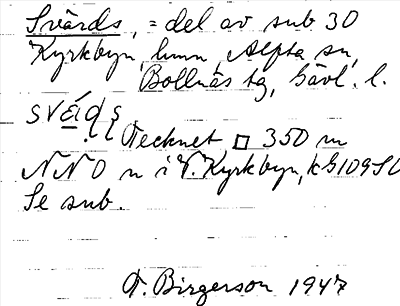 Svärds, = del av sub 30
Kyrkbyn, hmn, Alfta sn,
Bollnäs tg, Gävl. l.
Tecknet □ 350 m
NNO n i V. Kyrkbyn, k
Se sub.
T. Birgerson 1947